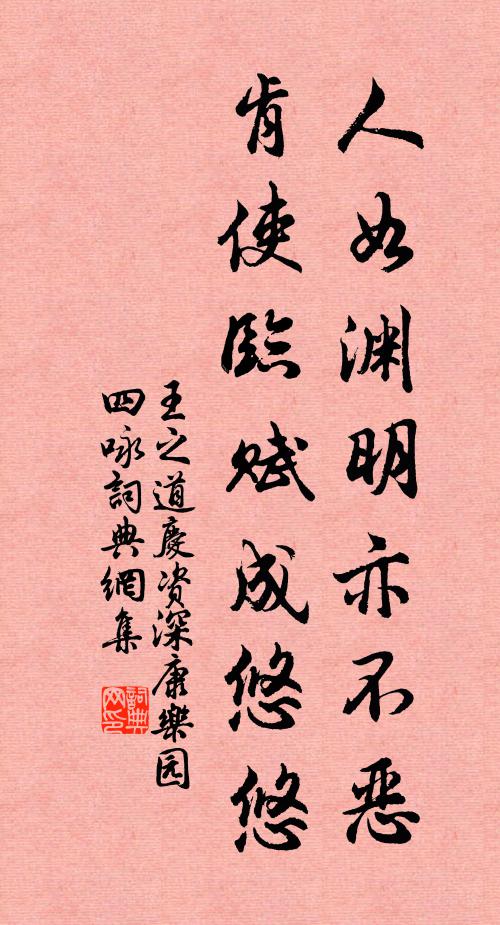 人如渊明亦不恶
肯使臨赋成悠悠
王之道慶资深康樂园
四咏詞典網集
詞典网印